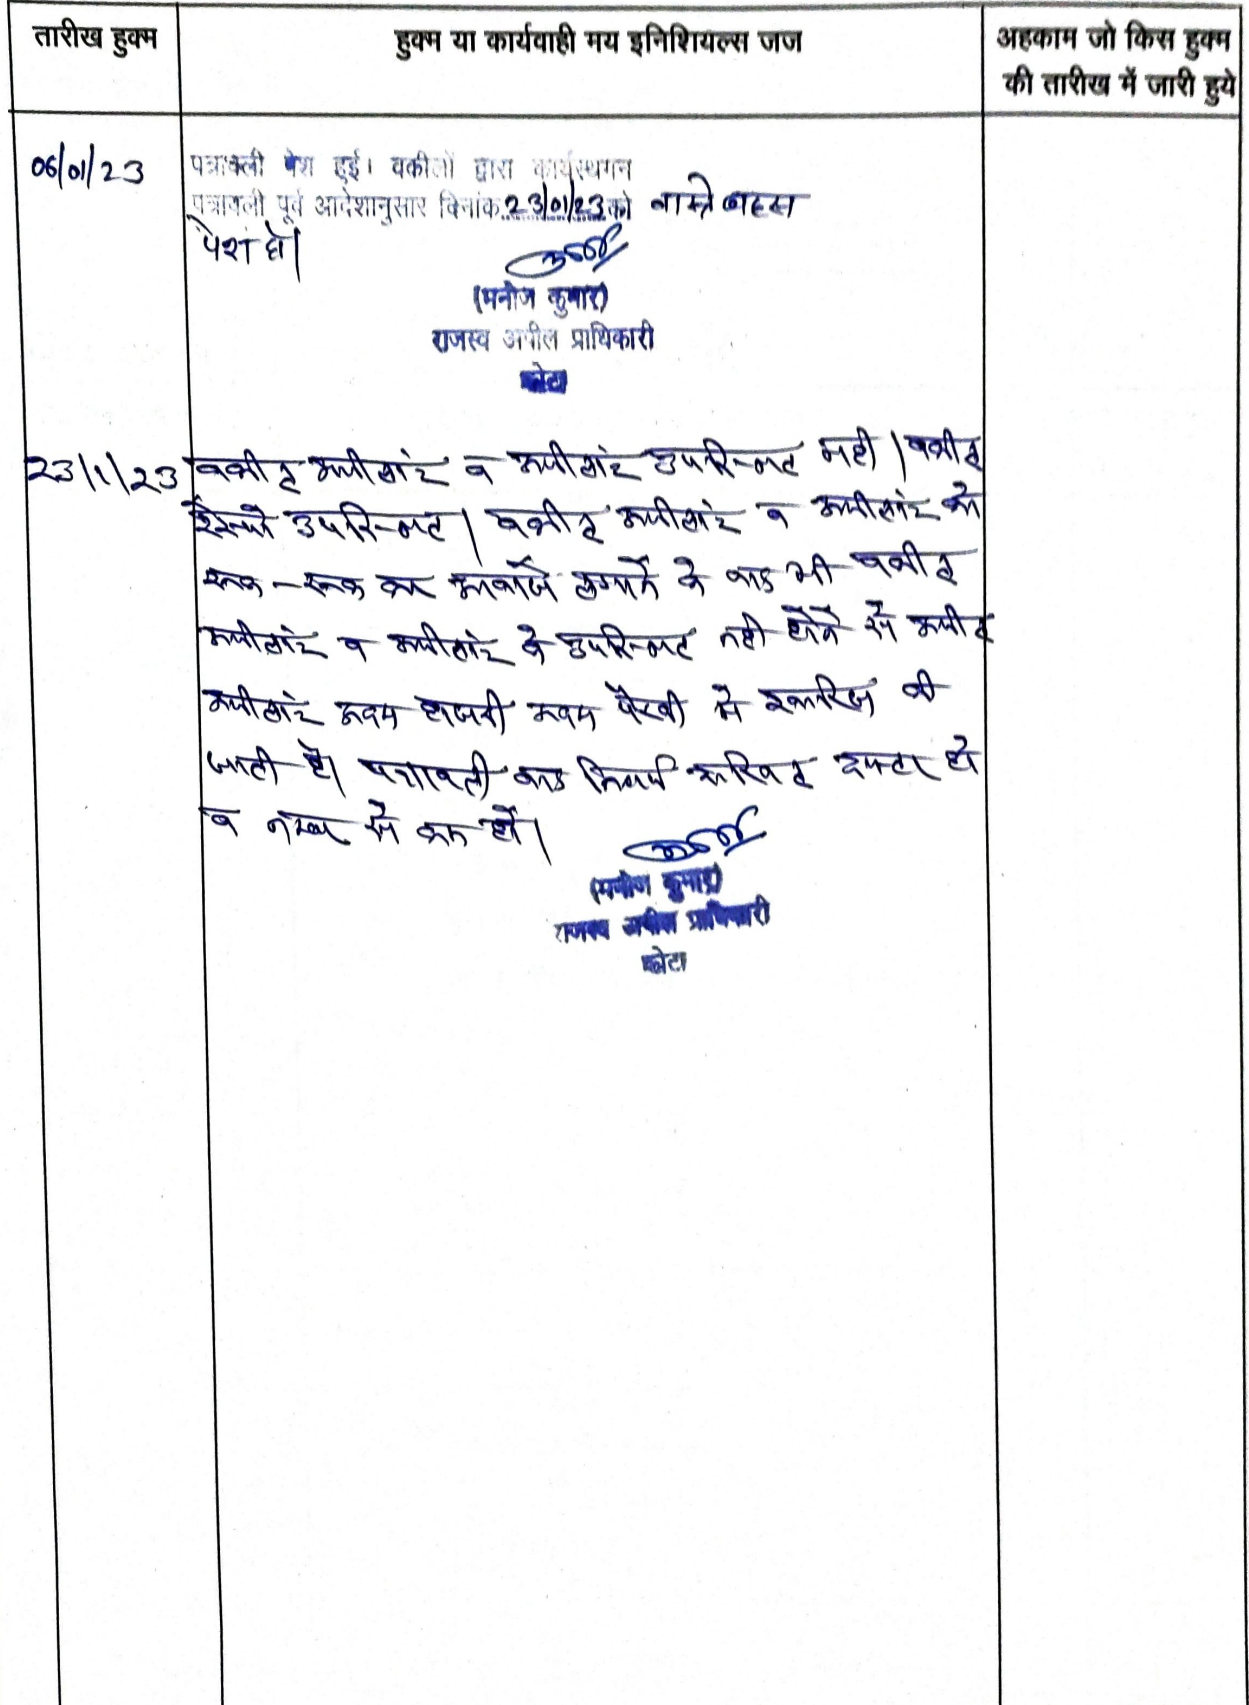 तारीख हुक्म
हुक्म या कार्यवाही मय इनिशियल्स जज
अहकाम जो किस हुक्म
की तारीख में जारी हुये
06/01/23
पत्रावली पेश हुई। वकीलों द्वारा कार्यस्थगन
पत्रावली पूर्व आदेशानुसार दिनांक 23/01/23 को वास्ते बहस
पेश हो।
(मनोज कुमार)
राजस्व अपील प्राधिकारी
कोटा
23/1/23 वकील अपीलांट व अपीलांट उपस्थित नही। वकील
रेस्पो उपस्थित। वकील अपीलांट व अपीलांट को
रूक-रूक कर आवाजे लगाने के बाद भी वकील
अपीलांट व अपीलांट के उपस्थित नही होने से अपील
अपीलांट अदम हाजरी अदम पैरवी मे खारिज की
जाती है। पत्रावली बाद निर्णय दाखिल दफ्तर हो
व नम्बर से कम हो।
(मनोज कुमार)
राजस्व अपील प्राधिकारी
कोटा